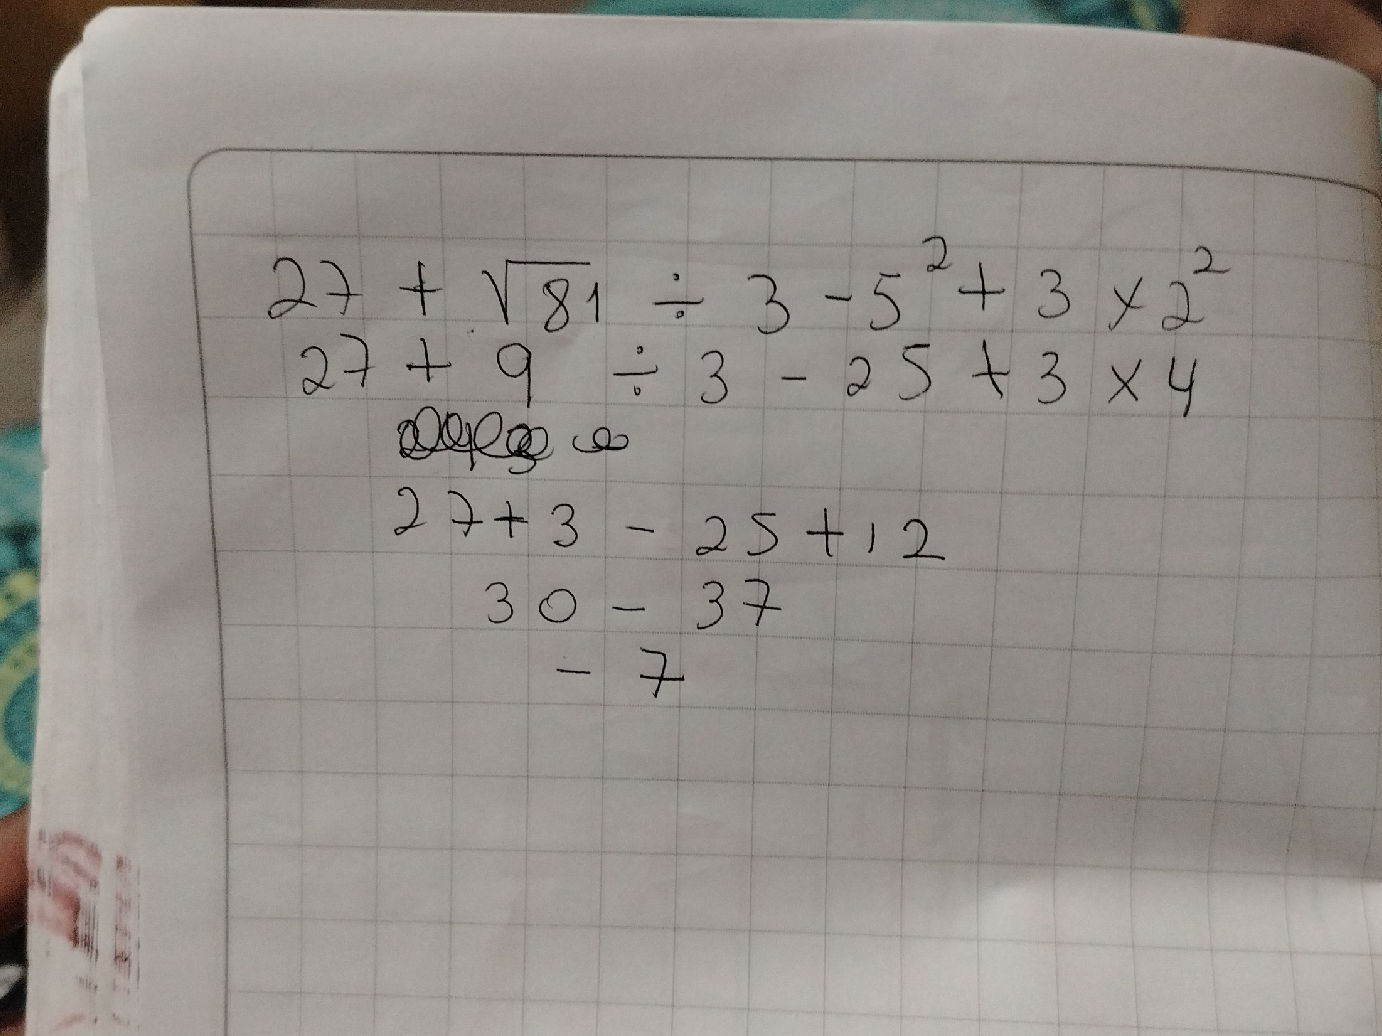 27 + √81 ÷ 3 - 5² + 3 × 2²
27 + 9 ÷ 3 - 25 + 3 × 4
27 + 3 - 25 + 12
30 - 37
- 7